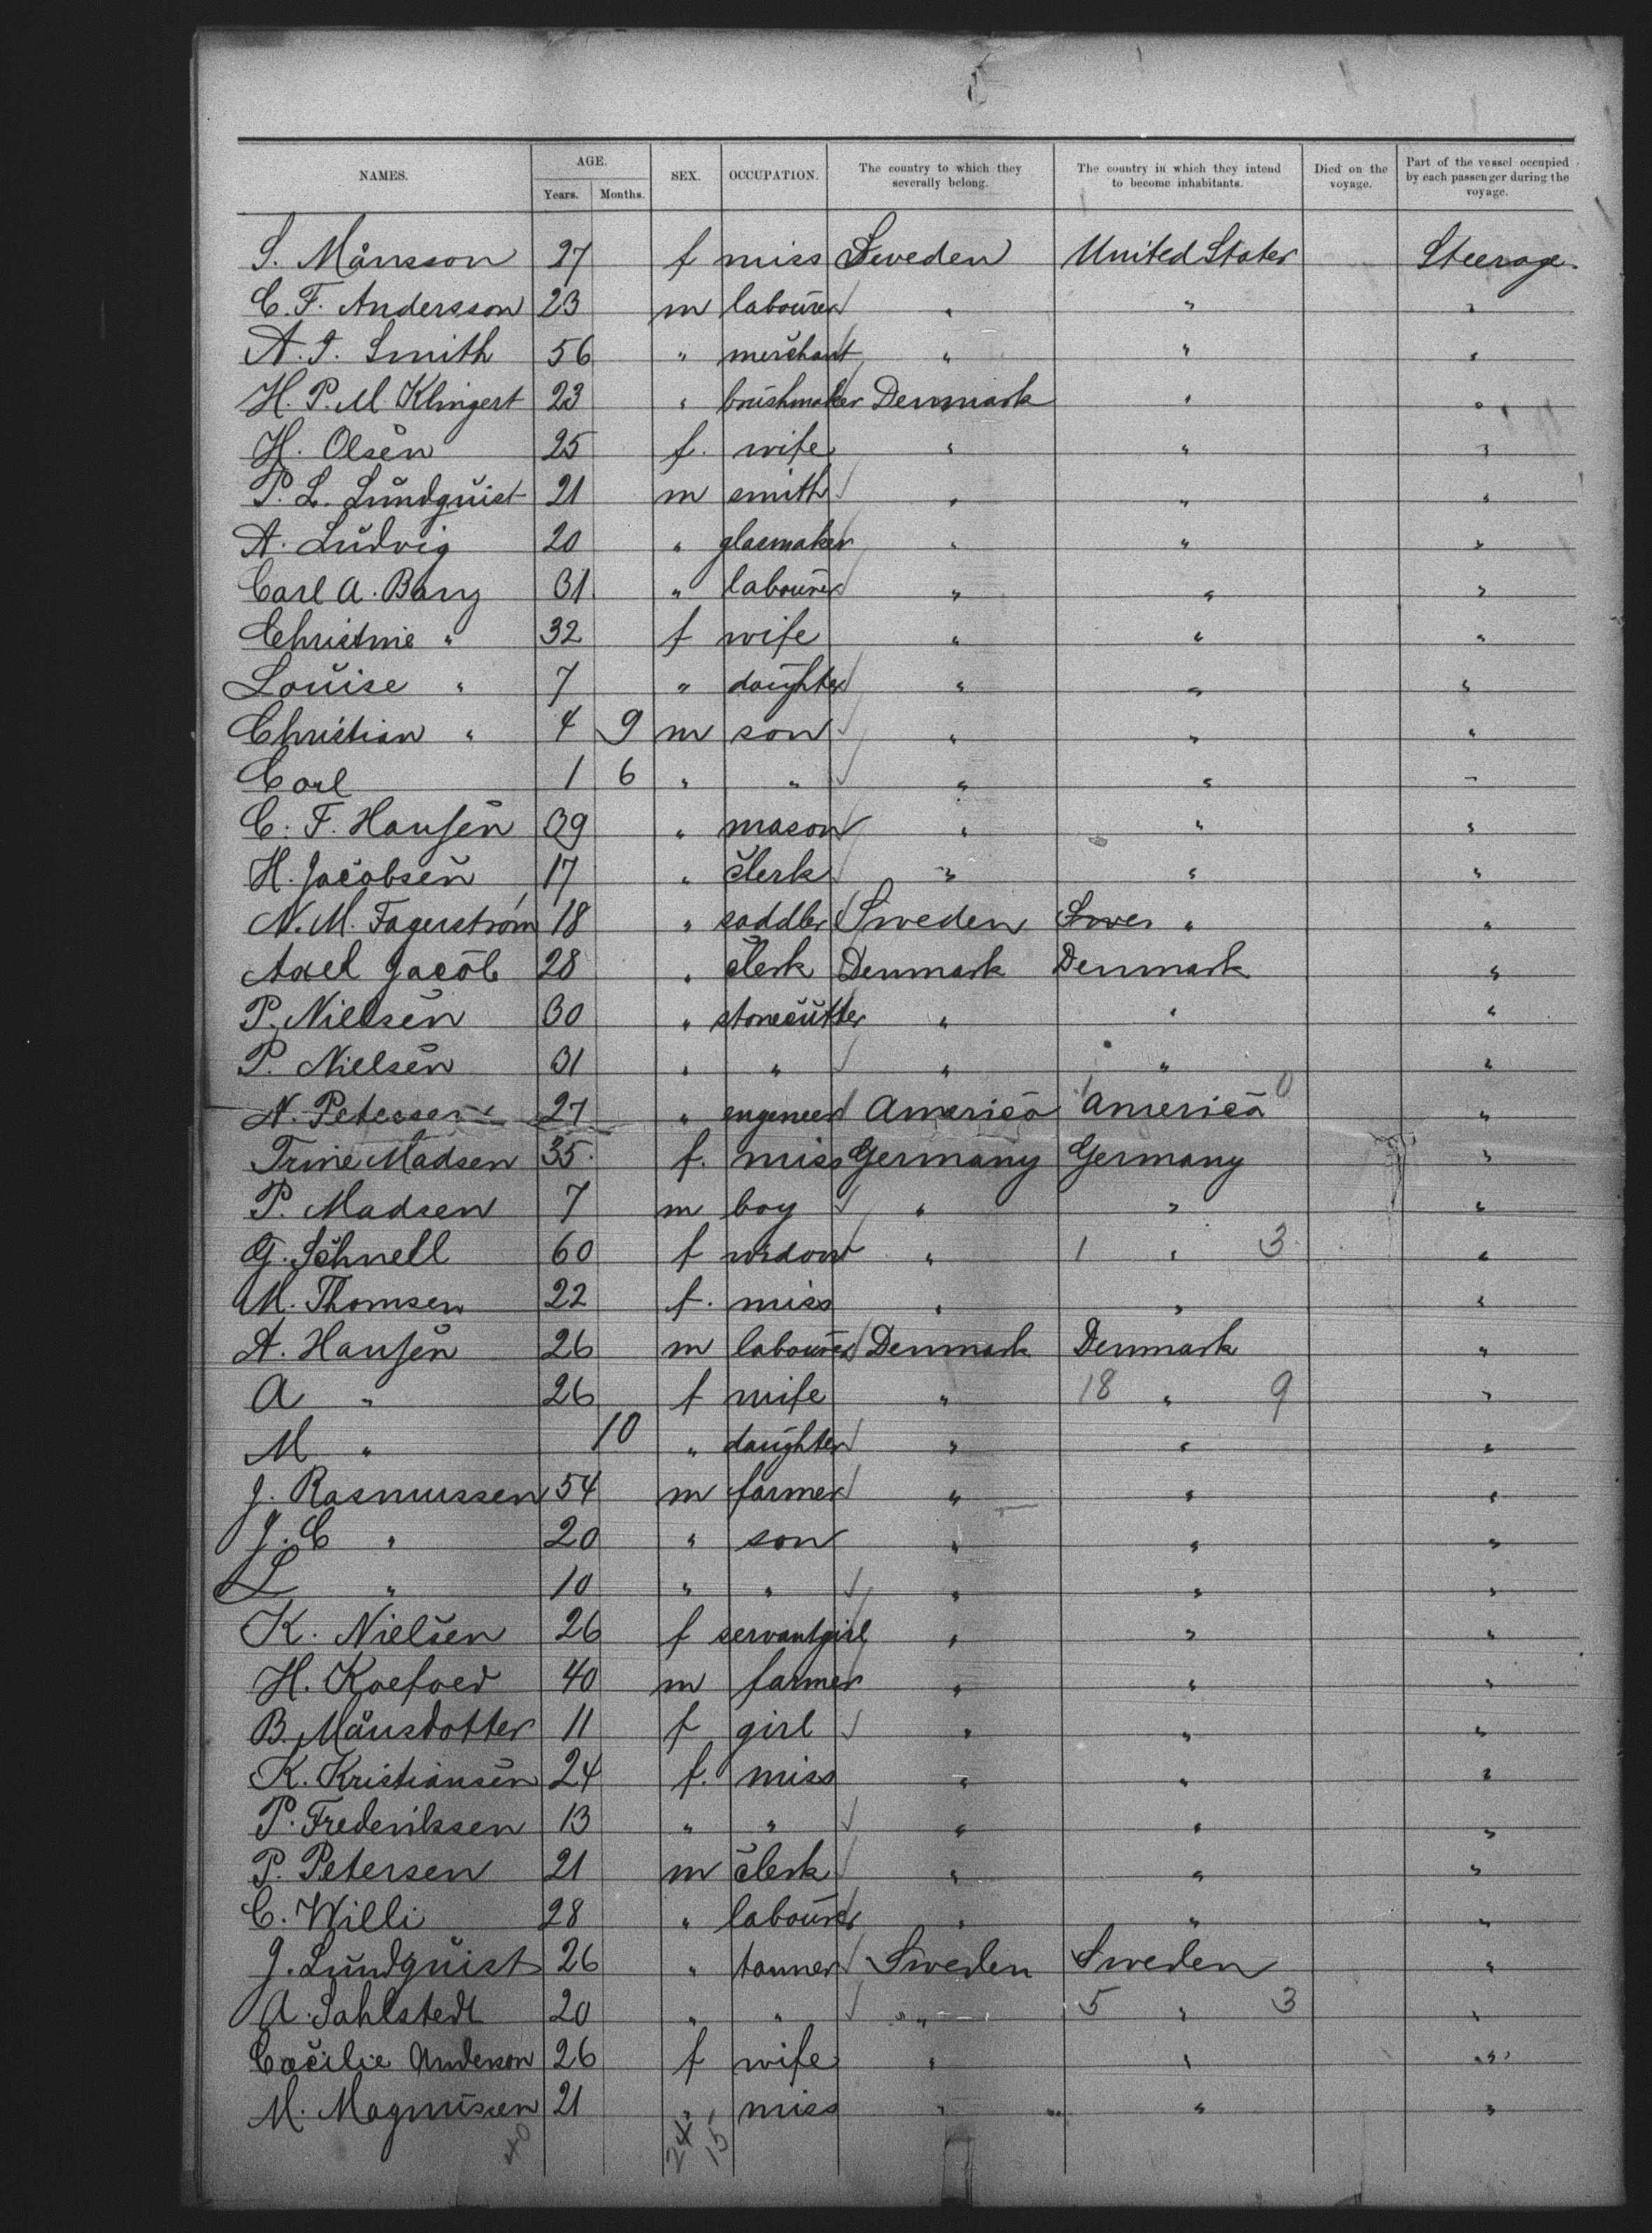 NAMES. AGE. Years. Months. SEX. OCCUPATION. The country to which they severally belong. The country in which they intend to become inhabitants. Died on the voyage. Part of the vessel occupied by each passenger during the voyage.
S. Månsson 27 f miss Sweden United States Steerage.
C. F. Andersson 23 m labourer " " "
A. J. Smith 56 " merchant " " "
H. P. M. Klingert 23 " brushmaker Denmark " "
H. Olsen 25 f. wife " " "
P. L. Lundquist 21 m smith " " "
A. Ludvig 20 " glasmaker " " "
Carl A. Bang 31 " labourer " " "
Christine " 32 f wife " " "
Louise " 7 " daughter " " "
Christian " 4 9 m son " " "
Carl 1 6 " " " " "
C. F. Hansen 39 " mason " " "
H. Jacobsen 17 " clerk " " "
N. M. Fagerström 18 " saddler Sweden " "
Axel Jacob 28 " clerk Denmark Denmark "
P. Nielsen 30 " stonecutter " " "
P. Nielsen 31 " " " " "
N. Petersen 27 " engeneer America 1 America 0 "
Trine Madsen 35. f. miss Germany Germany "
P. Madsen 7 m boy " " "
G. Schnell 60 f widow " 1 " 3 "
M. Thomsen 22 f. miss " " "
A. Hansen 26 m labourer Denmark Denmark "
A " 26 f wife " 18 " 9 "
M " 10 " daughter " " "
J. Rasmussen 54 m farmer " " "
J. C " 20 " son " " "
L " 10 " " " " "
K. Nielsen 26 f servantgirl " " "
H. Koefoed 40 m farmer " " "
B. Månsdotter 11 f girl " " "
K. Kristiansen 24 f. miss " " "
P. Frederiksen 13 " " " " "
P. Petersen 21 m clerk " " "
C. Willi 28 " labourer " " "
J. Lundquist 26 " tanner Sweden Sweden "
A. Sahlstedt 20 " " " 5 " 3 "
Cæcilie Anderson 26 f wife " " "
M. Magnussen 21 " miss " " "
40 24 15